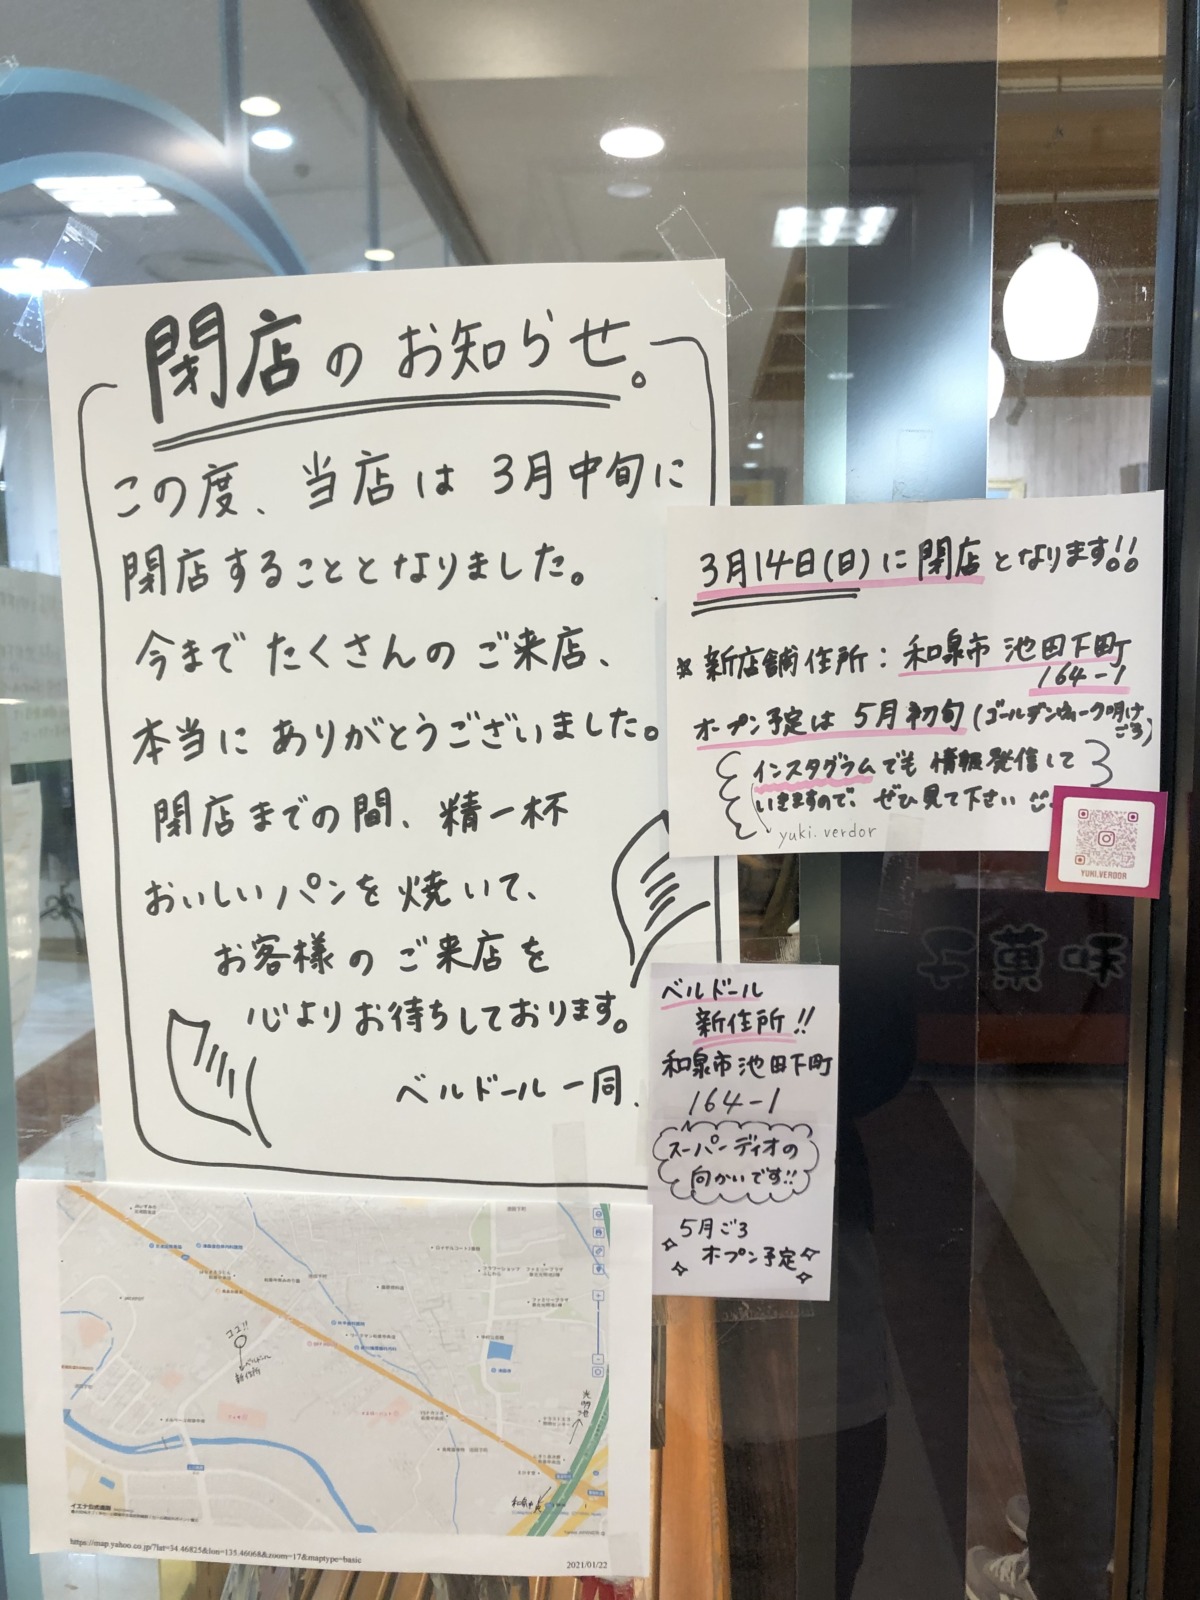 閉店のお知らせ。
この度、当店は3月中旬に
閉店することとなりました。
今までたくさんのご来店、
本当にありがとうございました。
閉店までの間、精一杯
おいしいパンを焼いて、
お客様のご来店を
心よりお待ちしております。
ベルドール一同.
3月14日(日)に閉店となります!!
※新店舗住所:和泉市池田下町
164-1
オープン予定は5月初旬(ゴールデンウィーク明け
ごろ)
インスタグラムでも情報発信して
いきますので、ぜひ見て下さい
yuki.verdor
YUKI.VERDOR
ベルドール
新住所!!
和泉市池田下町
164-1
スーパーディオの
向かいです!!
5月ごろ
オープン予定
和菓子
ココ!!
ベルドール
新住所
光明池
https://map.yahoo.co.jp/?lat=34.46825&lon=135.46068&zoom=17&maptype=basic
2021/01/22